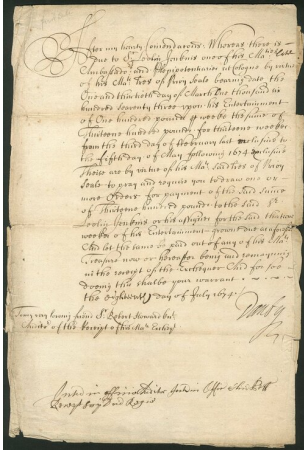 After my hearty Comendacons. Whereas there is
due to Sr Leolin Jenkins one of his Maties
Embassadrs and Plenipotentiaries at Cologne by virtue
of his Mats Lres of Privy Seale bearing date the
One and thirtieth day of March One thousand six
hundred seventy three upon his Entertainment
of One hundred pounds p weeke the sume of
Thirteene hundred pounds for thirteene weekes
from the third day of February last inclusive to
the fifth day of May following 1674
These are by virtue of his Mats said Lres of Privy
Seale to pray and require you to draw one or
more Orders for payment of the said sume
of Thirteene hundred pounds to the said Sr
Leolin Jenkins or his assignes for the said thirteene
weekes of his Entertainment grown due as aforesaid
And let the same be paid out of any of his Mats
Treasure now or hereafter being and remayning
in the receipt of the Exchequer And for soe
doeing this shalbe your warrant
the day of July 1674
Danby
To my very loving friend Sr Robert Howard
Auditor of the Receipt of his Mats Excheqr